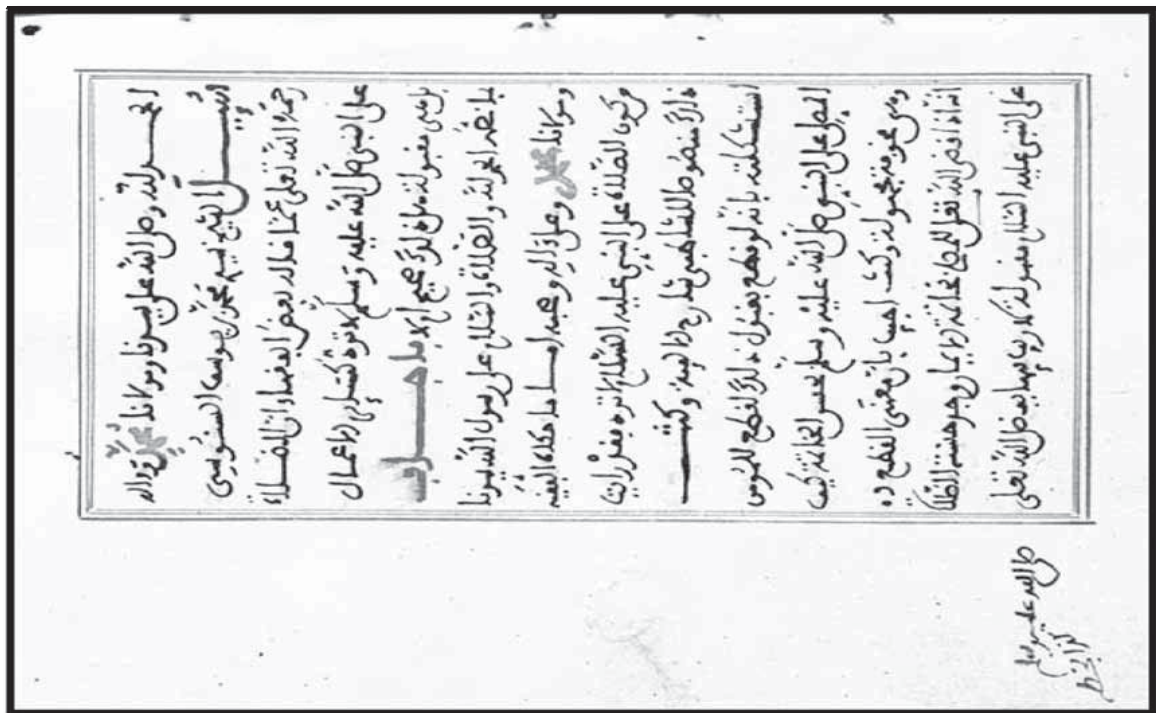 الحمد لله وصلى الله على سيدنا ومولانا محمد وءاله
سئل الشيخ سيدي محمد بن يوسف السنوسي
رحمه الله تعلى عما قاله بعض الفضلاء ان الصلاة
على النبي صلى الله عليه وسلم لا ترد كسائر الاعمال
بل هي مقبولة هل ذلك صحيح ام لا فاجاب
بما نصه الحمد لله والصلاة والسلام على رسول الله سيدنا
ومولانا محمد وعلى ءاله وصحبه اما ما حكاه الفقيه
من كون الصلاة على النبي عليه السلام لا ترد فقد رايت
ذلك منصوصا للشاطبي شارح الالفية وكنت
استشكلته بانه لو قطع بقبول ذلك لقطع للمومن
المصلي على النبي صلى الله عليه وسلم بحسن الخاتمة كيف
وهي مخوفة مجهولة وكنت اجيب بان معنى القطع
انه اذا قضى الله تعلى للمصلي بخاتمة الايمان وجد حسنة الصلاة
على النبي عليه السلام مقبولة لا ريب فيها بفضل الله تعلى
صلى الله عليه وسلم
كذا بخط